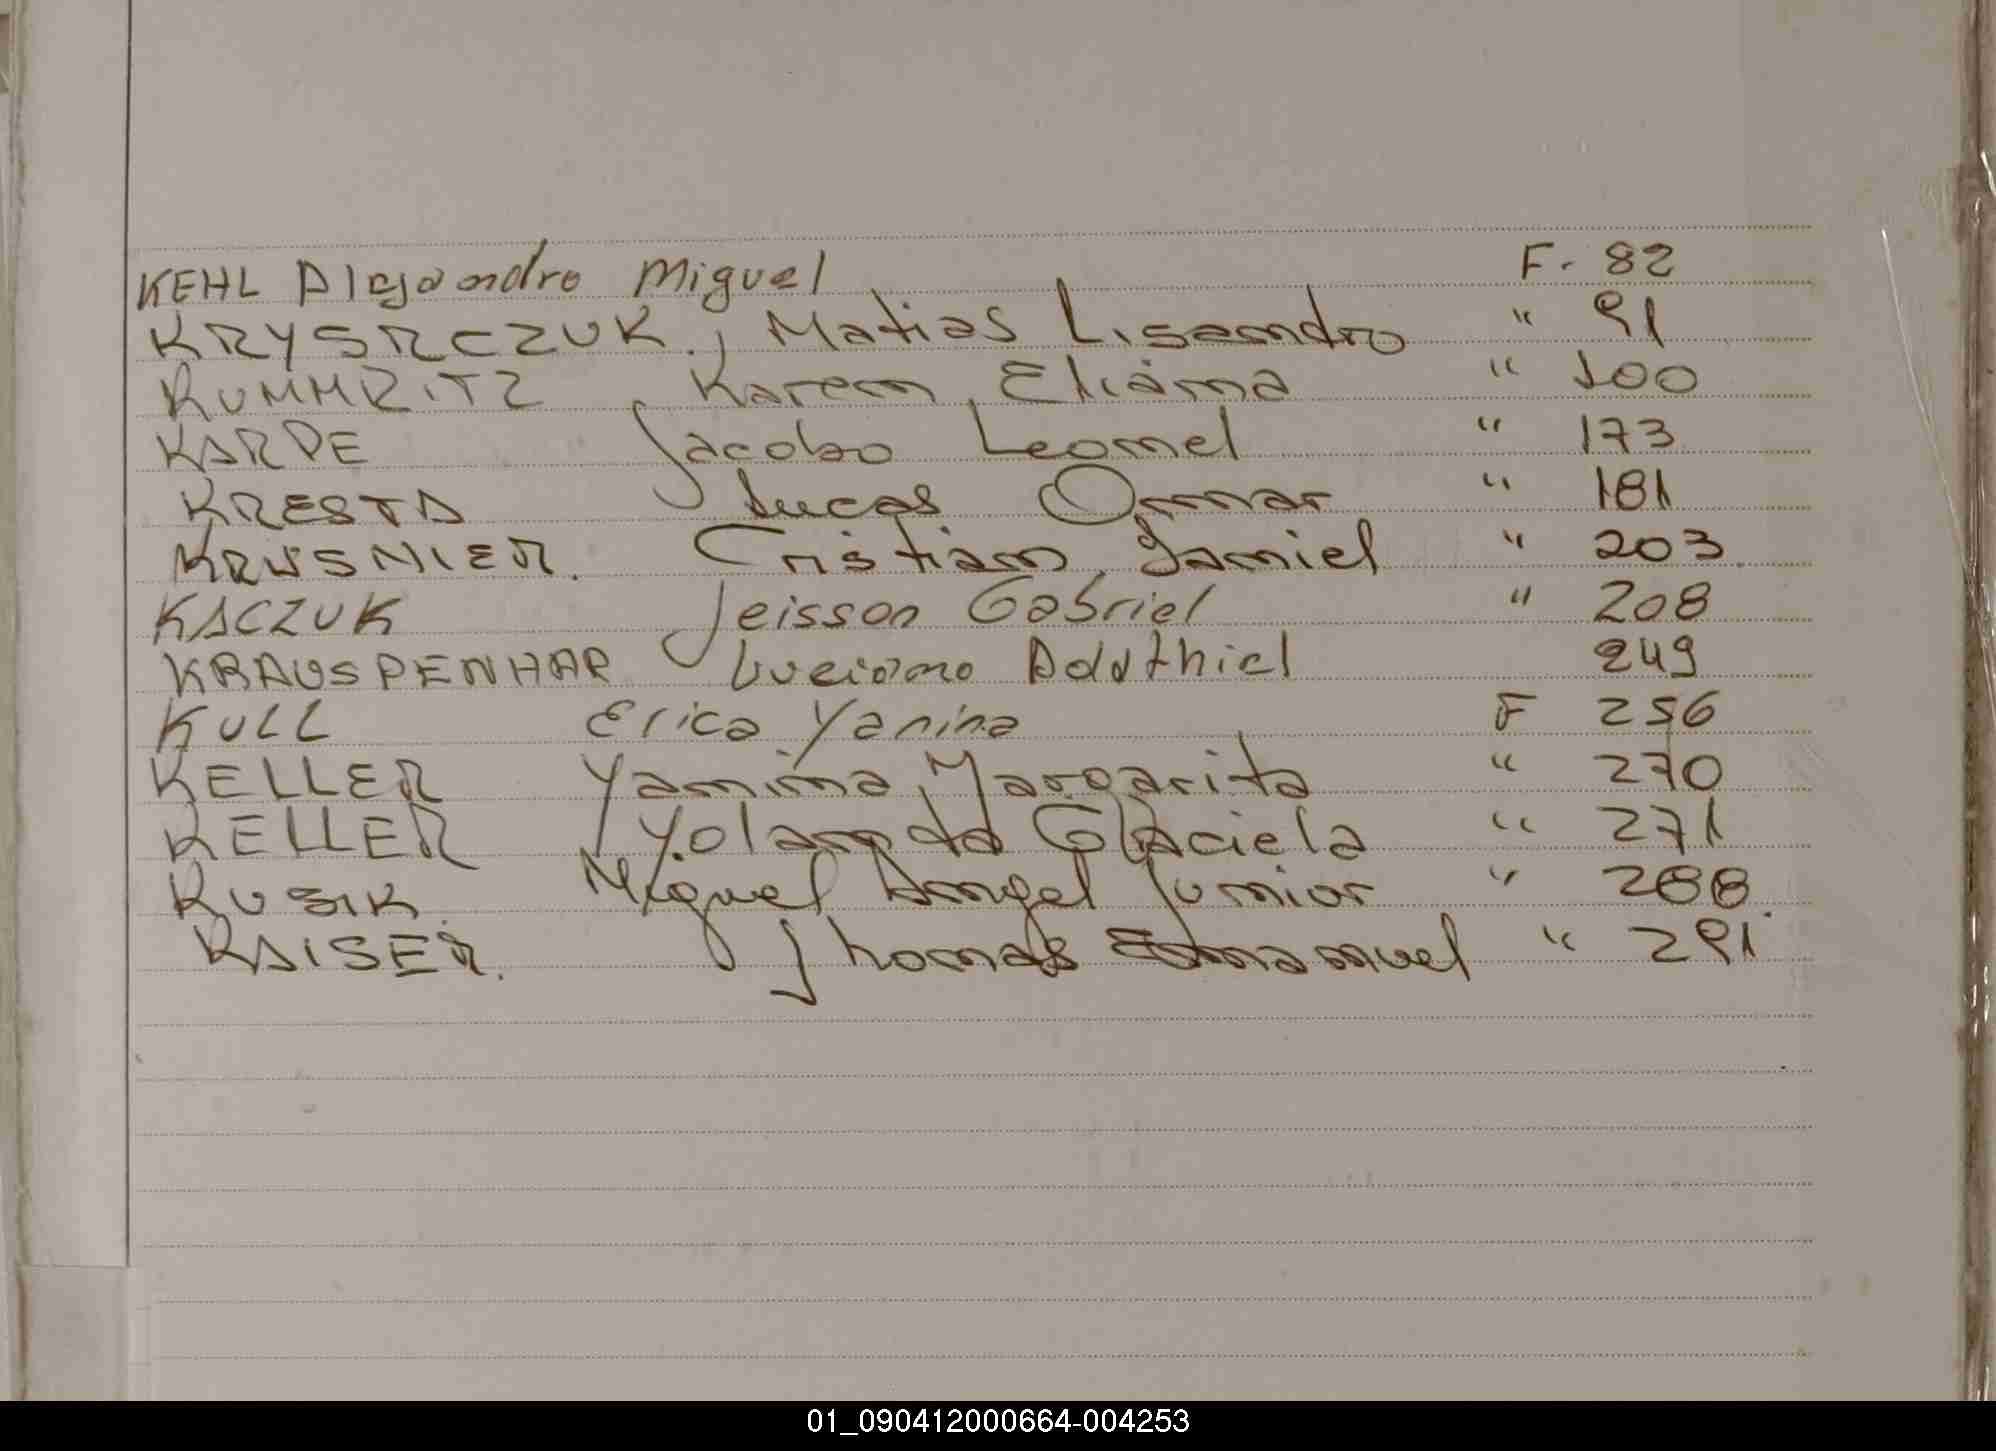 KEHL Alejandro Miguel F. 82
KRYSRCZUK, Matias Lisandro " 91
KUMMRITZ Karem Eliana " 100
KARPE Jacobo Leonel " 173
KRESTA Lucas Omar " 181
KRUSNIER. Cristian Daniel " 203
KACZUK Jeisson Gabriel " 208
KRAUSPENHAR Luciano 249
KULL Erica Yanina F 256
KELLER Yanina Margarita " 270
KELLER Yolanda Glaciela " 271
KUSIK Miguel Angel Junior " 288.
KAISER. Jhomas Emanuel " 291
01_090412000664-004253